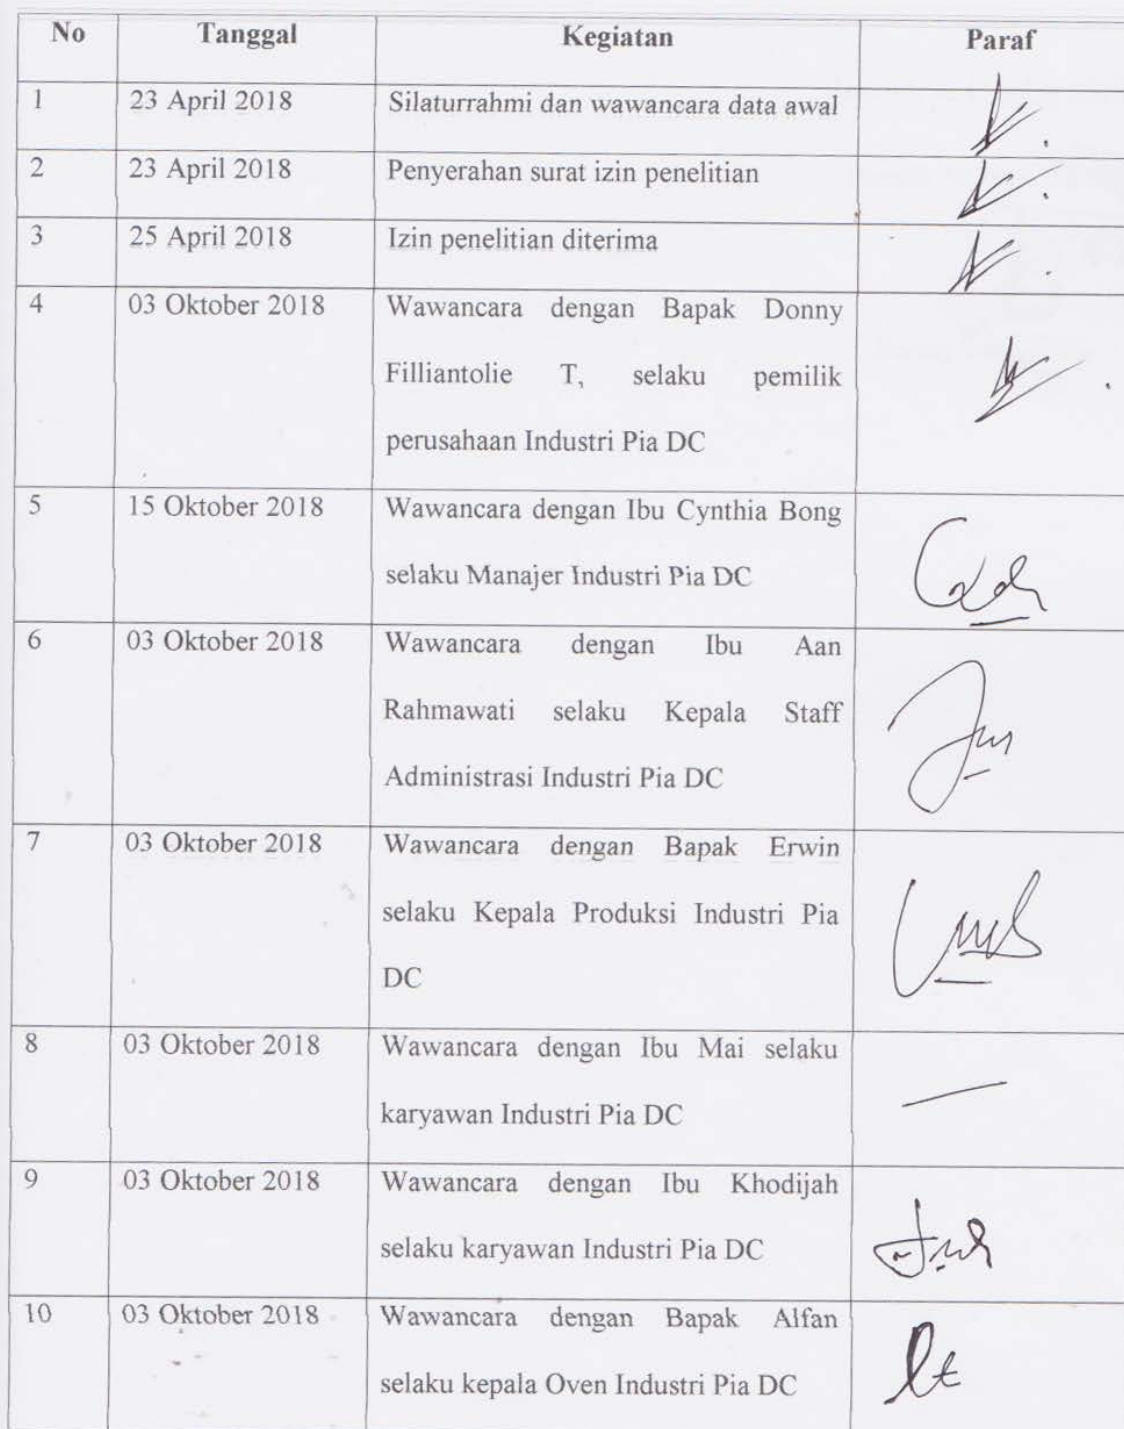 No Tanggal Kegiatan Paraf
1 23 April 2018 Silaturrahmi dan wawancara data awal
2 23 April 2018 Penyerahan surat izin penelitian
3 25 April 2018 Izin penelitian diterima
4 03 Oktober 2018 Wawancara dengan Bapak Donny
Filliantolie T, selaku pemilik
perusahaan Industri Pia DC
5 15 Oktober 2018 Wawancara dengan Ibu Cynthia Bong
selaku Manajer Industri Pia DC
6 03 Oktober 2018 Wawancara dengan Ibu Aan
Rahmawati selaku Kepala Staff
Administrasi Industri Pia DC
7 03 Oktober 2018 Wawancara dengan Bapak Erwin
selaku Kepala Produksi Industri Pia
DC
8 03 Oktober 2018 Wawancara dengan Ibu Mai selaku
karyawan Industri Pia DC
9 03 Oktober 2018 Wawancara dengan Ibu Khodijah
selaku karyawan Industri Pia DC
10 03 Oktober 2018 Wawancara dengan Bapak Alfan
selaku kepala Oven Industri Pia DC